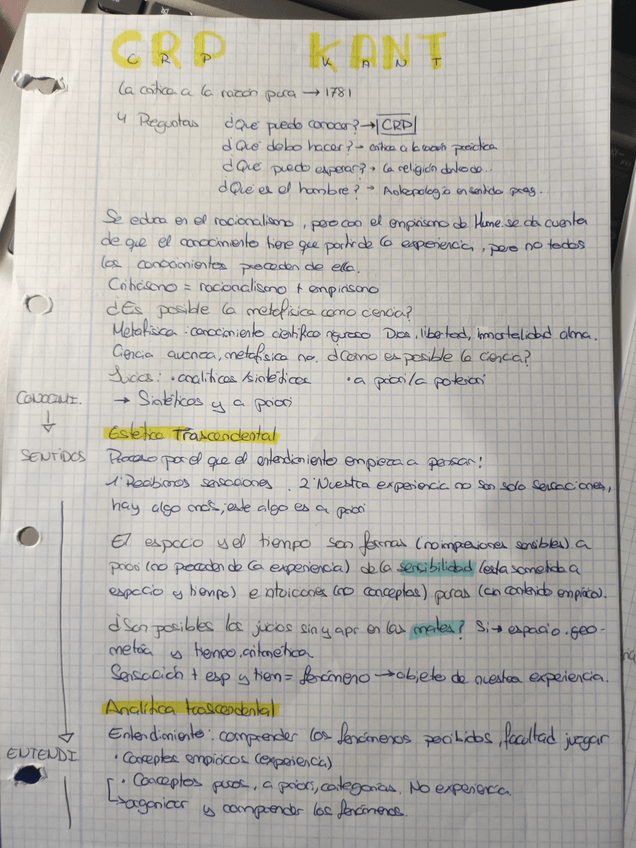 CRP KANT
C R P K A N T
La crítica a la razón pura → 1781
4 Preguntas ¿Qué puedo conocer? → CRP
¿Qué debo hacer? → crítica a la razón práctica
¿Qué puedo esperar? → La religión dentro de...
¿Qué es el hombre? → Antropología en sentido prag.
Se educa en el racionalismo, pero con el empirismo de Hume se da cuenta
de que el conocimiento tiene que partir de la experiencia, pero no todos
los conocimientos proceden de ella.
Criticismo = racionalismo + empirismo
¿Es posible la metafísica como ciencia?
Metafísica: conocimiento científico riguroso Dios, libertad, inmortalidad alma.
Ciencia avanza, metafísica no. ¿Cómo es posible la ciencia?
Juicios: · analíticos/sintéticos · a priori/a posteriori
CONOCIMI.
→ Sintéticos y a priori
Estética Trascendental
SENTIDOS
Proceso por el que el entendimiento empieza a pensar!
1. Recibimos sensaciones. 2. Nuestra experiencia no son solo sensaciones,
hay algo más, este algo es a priori
El espacio y el tiempo son formas (no impresiones sensibles) a
priori (no proceden de la experiencia) de la sensibilidad (esta sometida a
espacio y tiempo) e intuiciones (no conceptos) puras (sin contenido empírico).
¿Son posibles los juicios sin y apr en las mates? Si → espacio. geo-
metría y tiempo, aritmética
Sensación + esp y tiem = fenómeno → objeto de nuestra experiencia.
Analítica trascendental
Entendimiento: comprender los fenómenos percibidos, facultad juzgar
ENTENDI
· Conceptos empíricos (experiencia)
· Conceptos puros, a priori, categorías. No experiencia
→ organizar y comprender los fenómenos.